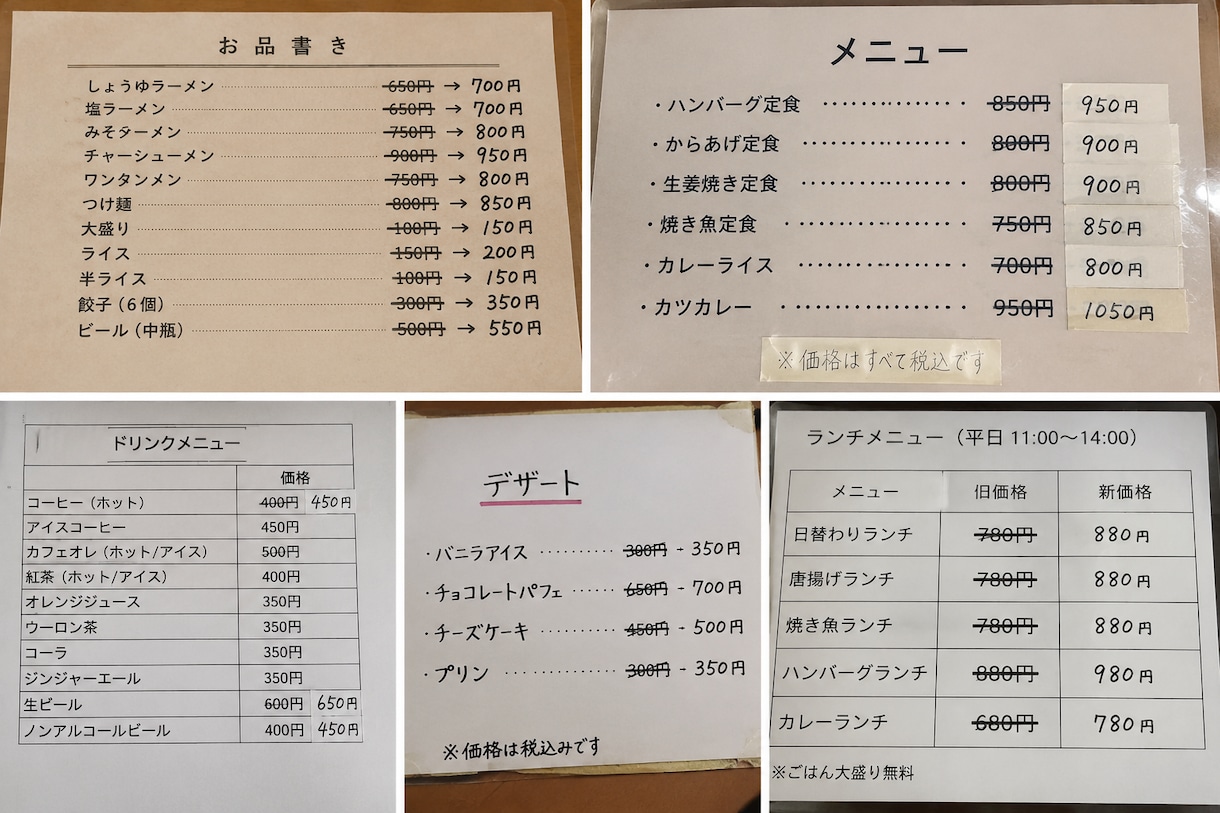 お品書き
しょうゆラーメン 650円 → 700円
塩ラーメン 650円 → 700円
みそラーメン 750円 → 800円
チャーシューメン 900円 → 950円
ワンタンメン 750円 → 800円
つけ麺 800円 → 850円
大盛り 100円 → 150円
ライス 150円 → 200円
半ライス 100円 → 150円
餃子(6個) 300円 → 350円
ビール(中瓶) 500円 → 550円
メニュー
・ハンバーグ定食 850円 950円
・からあげ定食 800円 900円
・生姜焼き定食 800円 900円
・焼き魚定食 750円 850円
・カレーライス 700円 800円
・カツカレー 950円 1050円
※価格はすべて税込です
ドリンクメニュー
価格
コーヒー(ホット) 400円 450円
アイスコーヒー 450円
カフェオレ(ホット/アイス) 500円
紅茶(ホット/アイス) 400円
オレンジジュース 350円
ウーロン茶 350円
コーラ 350円
ジンジャーエール 350円
生ビール 600円 650円
ノンアルコールビール 400円 450円
デザート
・バニラアイス 300円 - 350円
・チョコレートパフェ 650円 - 700円
・チーズケーキ 450円 - 500円
・プリン 300円 - 350円
※価格は税込みです
ランチメニュー(平日 11:00〜14:00)
メニュー 旧価格 新価格
日替わりランチ 780円 880円
唐揚げランチ 780円 880円
焼き魚ランチ 780円 880円
ハンバーグランチ 880円 980円
カレーランチ 680円 780円
※ごはん大盛り無料